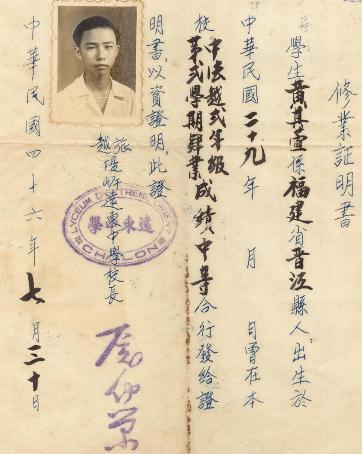 修業証明書
學生黃其壹係福建省晉江縣人出生於
中華民國二十九年 月 日曾在本
校中法越弍年級
第弍學期肆業成績中等合行發給證
明書以資證明此證
旅越堤岸遠東中學校長
遠東中學
LYCEUM
CHOLON
中華民國四十六年七月三十日